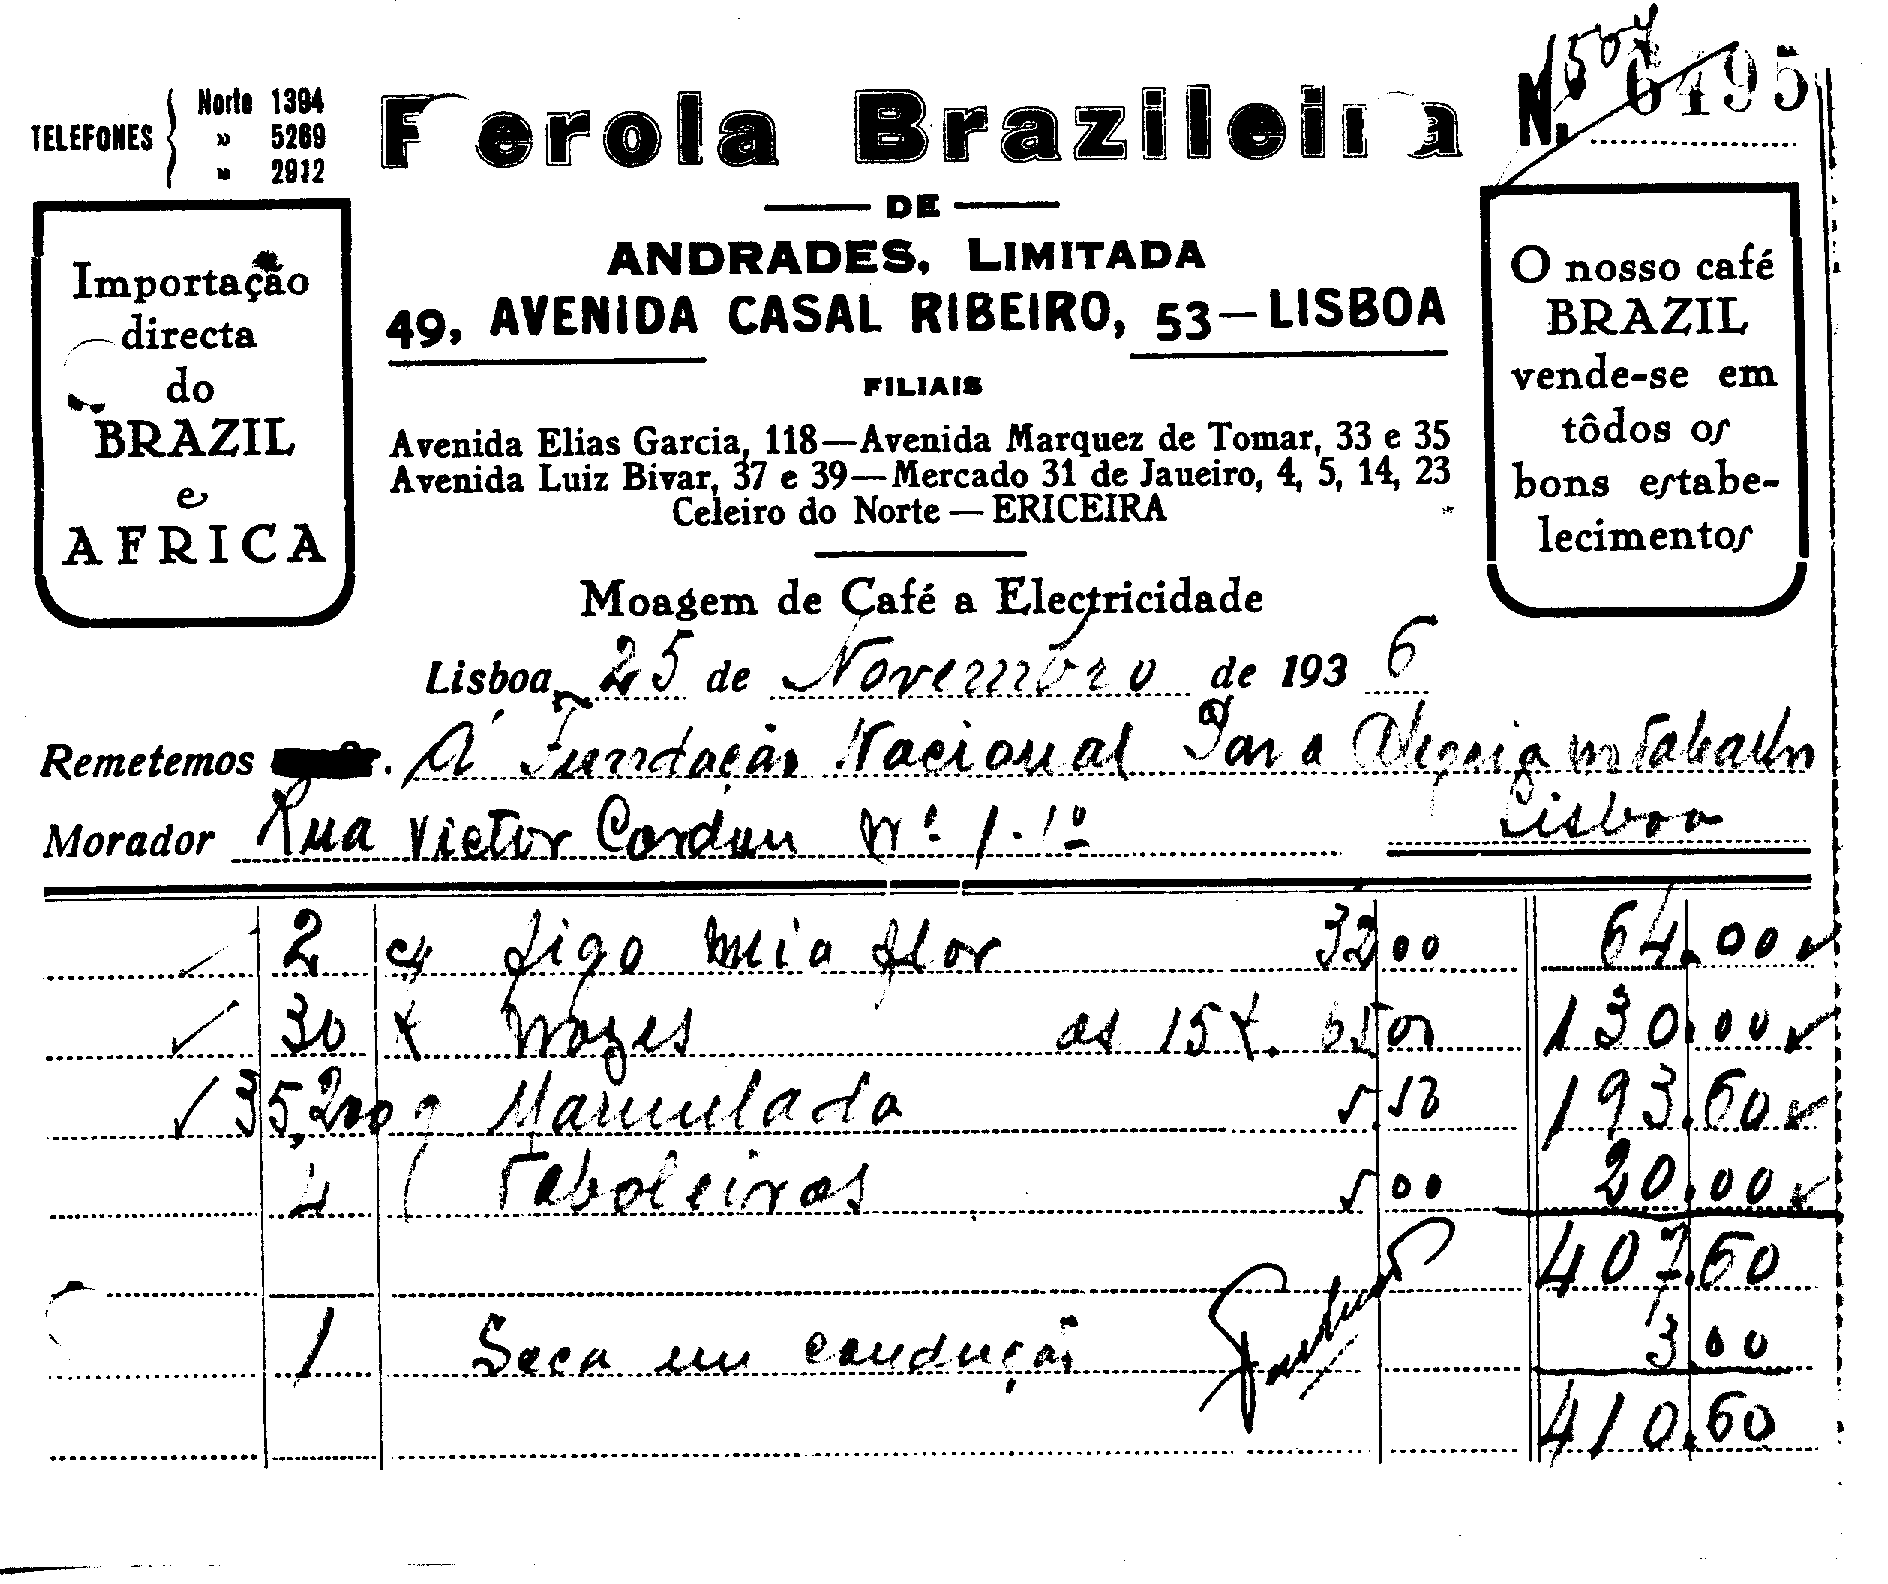 N. 6495
1504
TELEFONES { Norte 1394
» 5269
» 2912
Perola Brazileira
DE
ANDRADES, LIMITADA
49, AVENIDA CASAL RIBEIRO, 53—LISBOA
Importação
directa
do
BRAZIL
e
AFRICA
O nosso café
BRAZIL
vende-se em
tôdos os
bons estabe-
lecimentos
FILIAIS
Avenida Elias Garcia, 118—Avenida Marquez de Tomar, 33 e 35
Avenida Luiz Bivar, 37 e 39—Mercado 31 de Jaueiro, 4, 5, 14, 23
Celeiro do Norte — ERICEIRA
Moagem de Café a Electricidade
Lisboa, 25 de Novembro de 1936
Remetemos . Á Fundação Nacional Para Alegria no Trabalho
Morador Rua Victor Cordon Nº 1-1º Lisboa
2 cx figo meia flor 32 00 64.00
30 k Nozes as 15 k. 65 00 130.00
35,200 g Marmelada 5.50 193.60
4 Taboleiros 5 00 20.00
407.60
1 Saca em condução 3.00
410.60